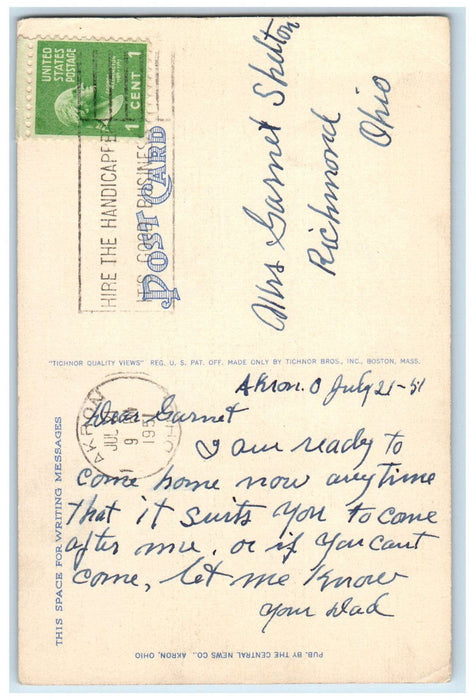 UNITED
STATES
POSTAGE
1 CENT 1
HIRE THE HANDICAPPED
IT'S GOOD BUSINESS
POST CARD
Mrs Garnet Shelton
Richmond
Ohio
"TICHNOR QUALITY VIEWS" REG. U. S. PAT. OFF. MADE ONLY BY TICHNOR BROS., INC., BOSTON, MASS.
AKRON
JUL
9
1951
OHIO
THIS SPACE FOR WRITING MESSAGES
Akron. O July 21-51
Dear Garnet
I am ready to
come home now anytime
that it suits you to come
after me. or if you cant
come, let me know
your Dad
PUB. BY THE CENTRAL NEWS CO., AKRON, OHIO